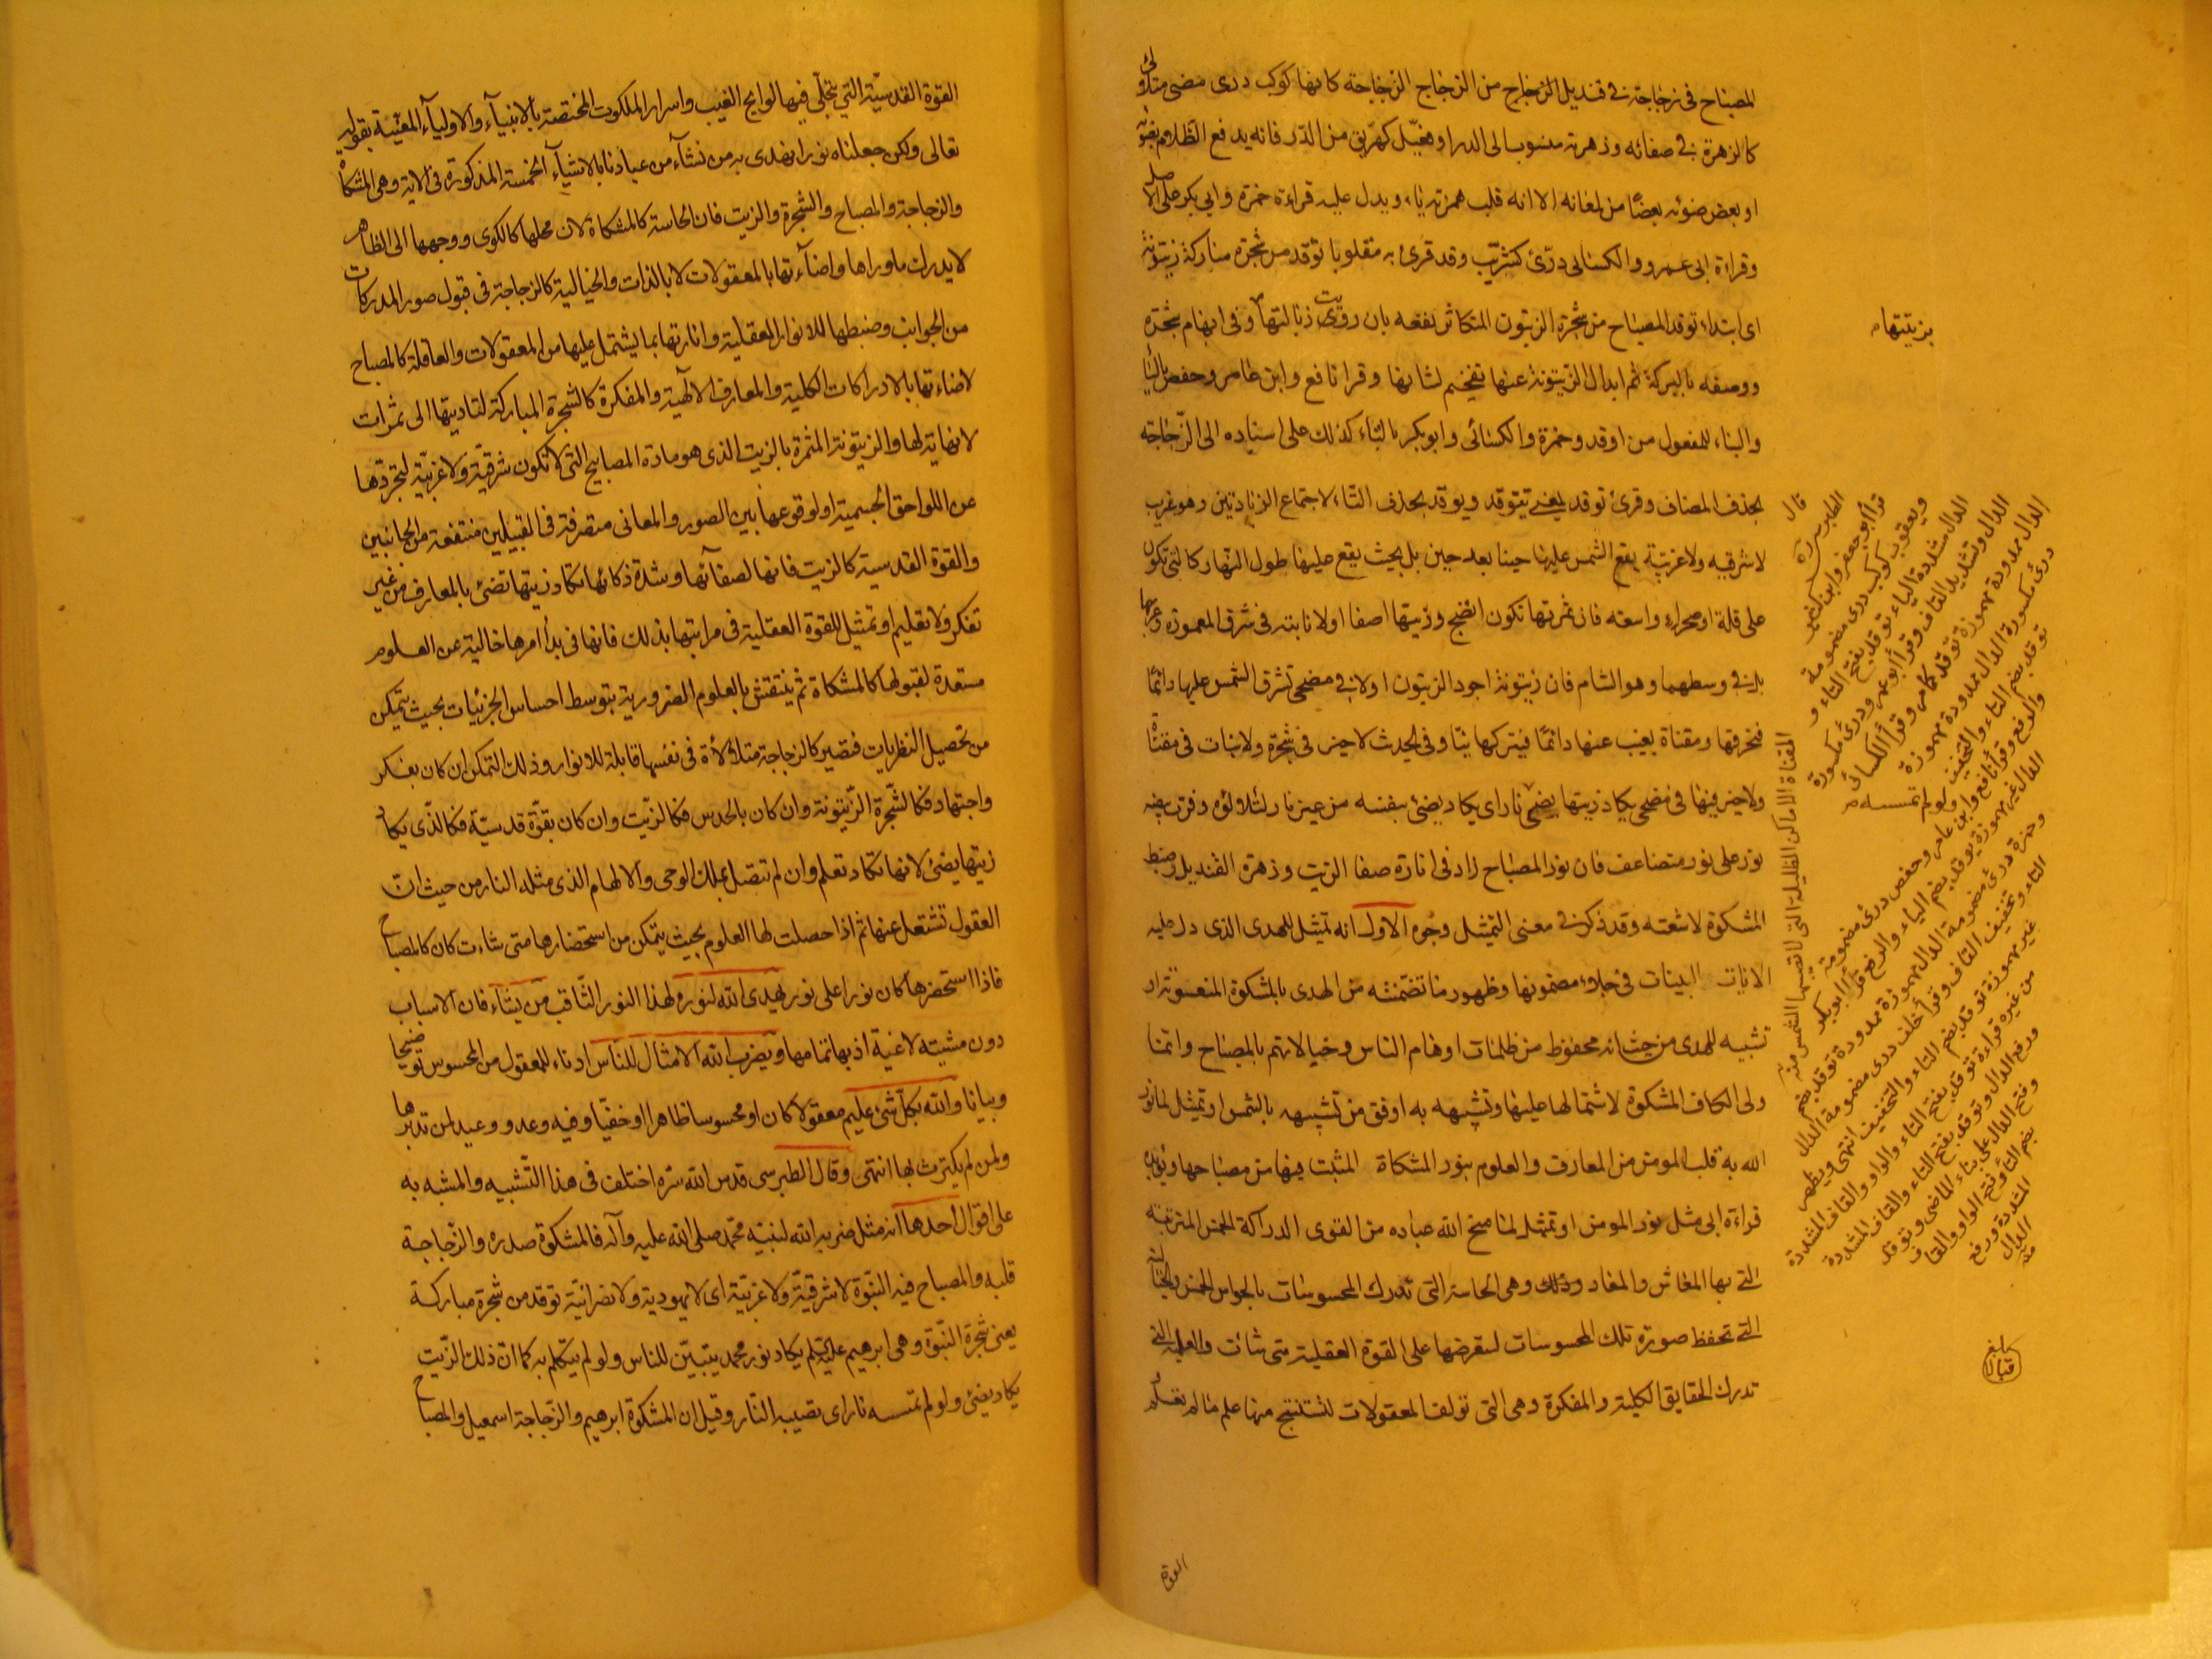 المصباح في زجاجة في قنديل الزجاج من الزجاج الزجاجة كانها كوكب درى مضى متلألئ
كالزهرة في صفائه وزهرته منسوب الى الدر او فعيل كمريق من الدرء فانه يدفع الظلام بضوئه
او بعض ضوئه بعضا من لمعانه الا انه قلب همزته ياء ويدل عليه قراءة حمزة وابي بكر على الاصل
وقراءة ابى عمرو والكسائى درّئ كشرّيب وقد قرئ به مقلوبا توقد من شجرة مباركة زيتونة
اى ابتداء توقد المصباح من شجرة الزيتون المتكاثر نفعه بان رويت ذبالتها وفى ابهام شجرة
ووصفه بالبركة ثم ابدال الزيتونة عنها تفخيم لشانها وقرا نافع وابن عامر وحفص بالياء
والبناء للمفعول من اوقد وحمزة والكسائى وابوبكر بالتاء كذلك على اسناده الى الزجاجة
بحذف المضاف وقرئ توقد بمعنى تتوقد ويوقد بحذف التاء لاجتماع الزيادتين وهو غريب
لا شرقيه ولا غربية يقع الشمس عليها حينا بعد حين بل بحيث يقع عليها طول النهار كالتى تكون
على قلة او صحراء واسعه فان ثمرتها تكون انضج وزيتها اصفا او لا نابتة فى شرق المعمورة وغربها
بل في وسطهما وهو الشام فان زيتونة اجود الزيتون او لا في مضحى تشرق الشمس عليها دائما
فتحرقها ومقناة يغيب عنها دائما فيتركها نيا وفى الحديث لا خير فى شجرة ولا نبات فى مقناة
ولا خير فيها فى مضحى يكاد زيتها يضئ نار اى يكاد يضئ بنفسه من غير نار لتلالؤه وفرط بيضه
نور على نور متضاعف فان نور المصباح زاد فى انارة صفا الزيت وزهرة القنديل وضبط
المشكوة لاشعته وقد ذكر في معنى التمثيل وجوه الاول انه تمثيل للهدى الذى دل عليه
الايات البينات فى جلاء مضمونها وظهور ما تضمنته من الهدى بالمشكوة المنعوتة او
تشبيه للهدى من حيث انه محفوظ من ظلمات اوهام الناس وخيالاتهم بالمصباح وانما
ولى الكاف المشكوة لاشتمالها عليها وتشبيهه به اوفق من تشبيهه بالشمس او تمثيل لما نور
الله به قلب المومن من المعارف والعلوم بنور المشكاة المثبت فيها من مصباحها ويؤيده
قراءة ابى مثل نور المومن او تمثيل لما منح الله عباده من القوى الدراكة الخمس المترتبة
التى بها المعاش والمعاد وذلك وهى الحاسة التى تدرك المحسوسات بالحواس الخمس والخيالية
التى تحفظ صورة تلك المحسوسات لتعرضها على القوة العقلية متى شائت والعلية التى
تدرك الحقايق الكلية والمفكرة وهى التى تولف المعقولات لتستنتج منها علم ما لم تعلم
القوة
بزيتها م
قال
الطبرسى ره
قرأ أبو جعفر وابن كثير
ويعقوب كوكب درى مضمومة
الدال مشددة الياء توقد بفتح التاء و
الدال وتشديد القاف وقرأ أبو عمرو درئ مكسورة
الدال ممدودة مهموزة توقد كما مر وقرأ الكسائى
درئ مكسورة الدال ممدودة مهموزة
توقد بضم التاء والتخفيف
والرفع وقرأ نافع وابن عامر وحفص درى مضمومة
الدال غير مهموزة يوقد بضم الياء والرفع قرأ ابوبكر
وحمزة درئ مضمومة الدال مهموزة ممدودة توقد بضم
التاء وتخفيف القاف وقرأ خلف درى مضمومة الدال
غير مهموزة توقد بضم التاء والتخفيف انتهى ويظهر
من غيره قراءة توقد بفتح التاء والواو والقاف المشددة
ورفع الدال وتوقد بفتح التاء والقاف المشددة
وفتح الدال على بناء الماضى وتوقد
بضم التاء وفتح الواو والقاف
المشددة ورفع
الدال
منه
ولو لم تمسسه م
المقناة الاماكن الظليلة التى لا تصيبها الشمس منه
بلغ
قبالا
القوة القدسية التي تتجلى فيها لوايح الغيب واسرار الملكوت المختصة بالانبياء والاولياء المعنية بقوله
تعالى ولكن جعلناه نورا نهدى به من نشاء من عبادنا بالاشياء الخمسة المذكورة فى الاية وهى المشكاة
والزجاجة والمصباح والشجرة والزيت فان الحاسة كالمشكاة لان محلها كالكوى ووجهها الى الظاهر
لا يدرك ماوراها واضآءتها بالمعقولات لا بالذات والخيالية كالزجاجة فى قبول صور المدركات
من الجوانب وضبطها للانوار العقلية وانارتها بما يشتمل عليها من المعقولات والعاقلة كالمصباح
لاضاءتها بالادراكات الكلية والمعارف الالهية والمفكرة كالشجرة المباركة لتاديتها الى ثمرات
لا نهاية لها والزيتونة المثمرة بالزيت الذى هو مادة المصابيح التى لا تكون شرقية ولا غربية لتجردها
عن اللواحق الجسمية او لوقوعها بين الصور والمعانى متصرفة فى القبيلين منتفعة من الجانبين
والقوة القدسية كالزيت فانها لصفآئها وشدة ذكائها تكاد زيتها تضئ بالمعارف من غير
تفكر ولا تعليم او تمثيل للقوة العقلية فى مراتبها بذلك فانها فى بدأ امرها خالية عن العلوم
مستعدة لقبولها كالمشكاة ثم ينتقش بالعلوم الضرورية بتوسط احساس الجزئيات بحيث يتمكن
من تحصيل النظريات فتصير كالزجاجة متلألأة فى نفسها قابلة للانوار وذلك التمكن ان كان بفكر
واجتهاد فكالشجرة الزيتونة وان كان بالحدس فكالزيت وان كان بقوة قدسية فكالذى يكاد
زيتها يضئ لانها تكاد تعلم وان لم تتصل بملك الوحى والالهام الذى مثله النار من حيث ان
العقول تشتعل عنها ثم اذا حصلت لها العلوم بحيث يتمكن من استحضارها متى شاءت كان كالمصباح
فاذا استحضرها كان نورا على نور يهدى الله لنوره لهذا النور الثاقب من يشاء فان الاسباب
دون مشيته لاغية اذ بها تمامها ويضرب الله الامثال للناس ادناء للمعقول من المحسوس توضيحا
وبيانا والله بكل شئ عليم معقولا كان او محسوسا ظاهرا او خفيا وفيه وعد ووعيد لمن تدبرها
ولمن لم يكترث لها انتهى وقال الطبرسى قدس الله سره اختلف فى هذا التشبيه والمشبه به
على اقوال احدها انه مثل ضربه الله لنبيه محمد صلى الله عليه وآله فالمشكوة صدره والزجاجة
قلبه والمصباح فيه النبوة لا شرقية ولا غربية اى لا يهودية ولا نصرانية توقد من شجرة مباركة
يعنى شجرة النبوة وهى ابرهيم عليه السلم يكاد نور محمد يتبين للناس ولو لم يتكلم به كما ان ذلك الزيت
يكاد يضئ ولو لم تمسسه نار اى تصيبه النار وقيل ان المشكوة ابرهيم والزجاجة اسمعيل والمصباح